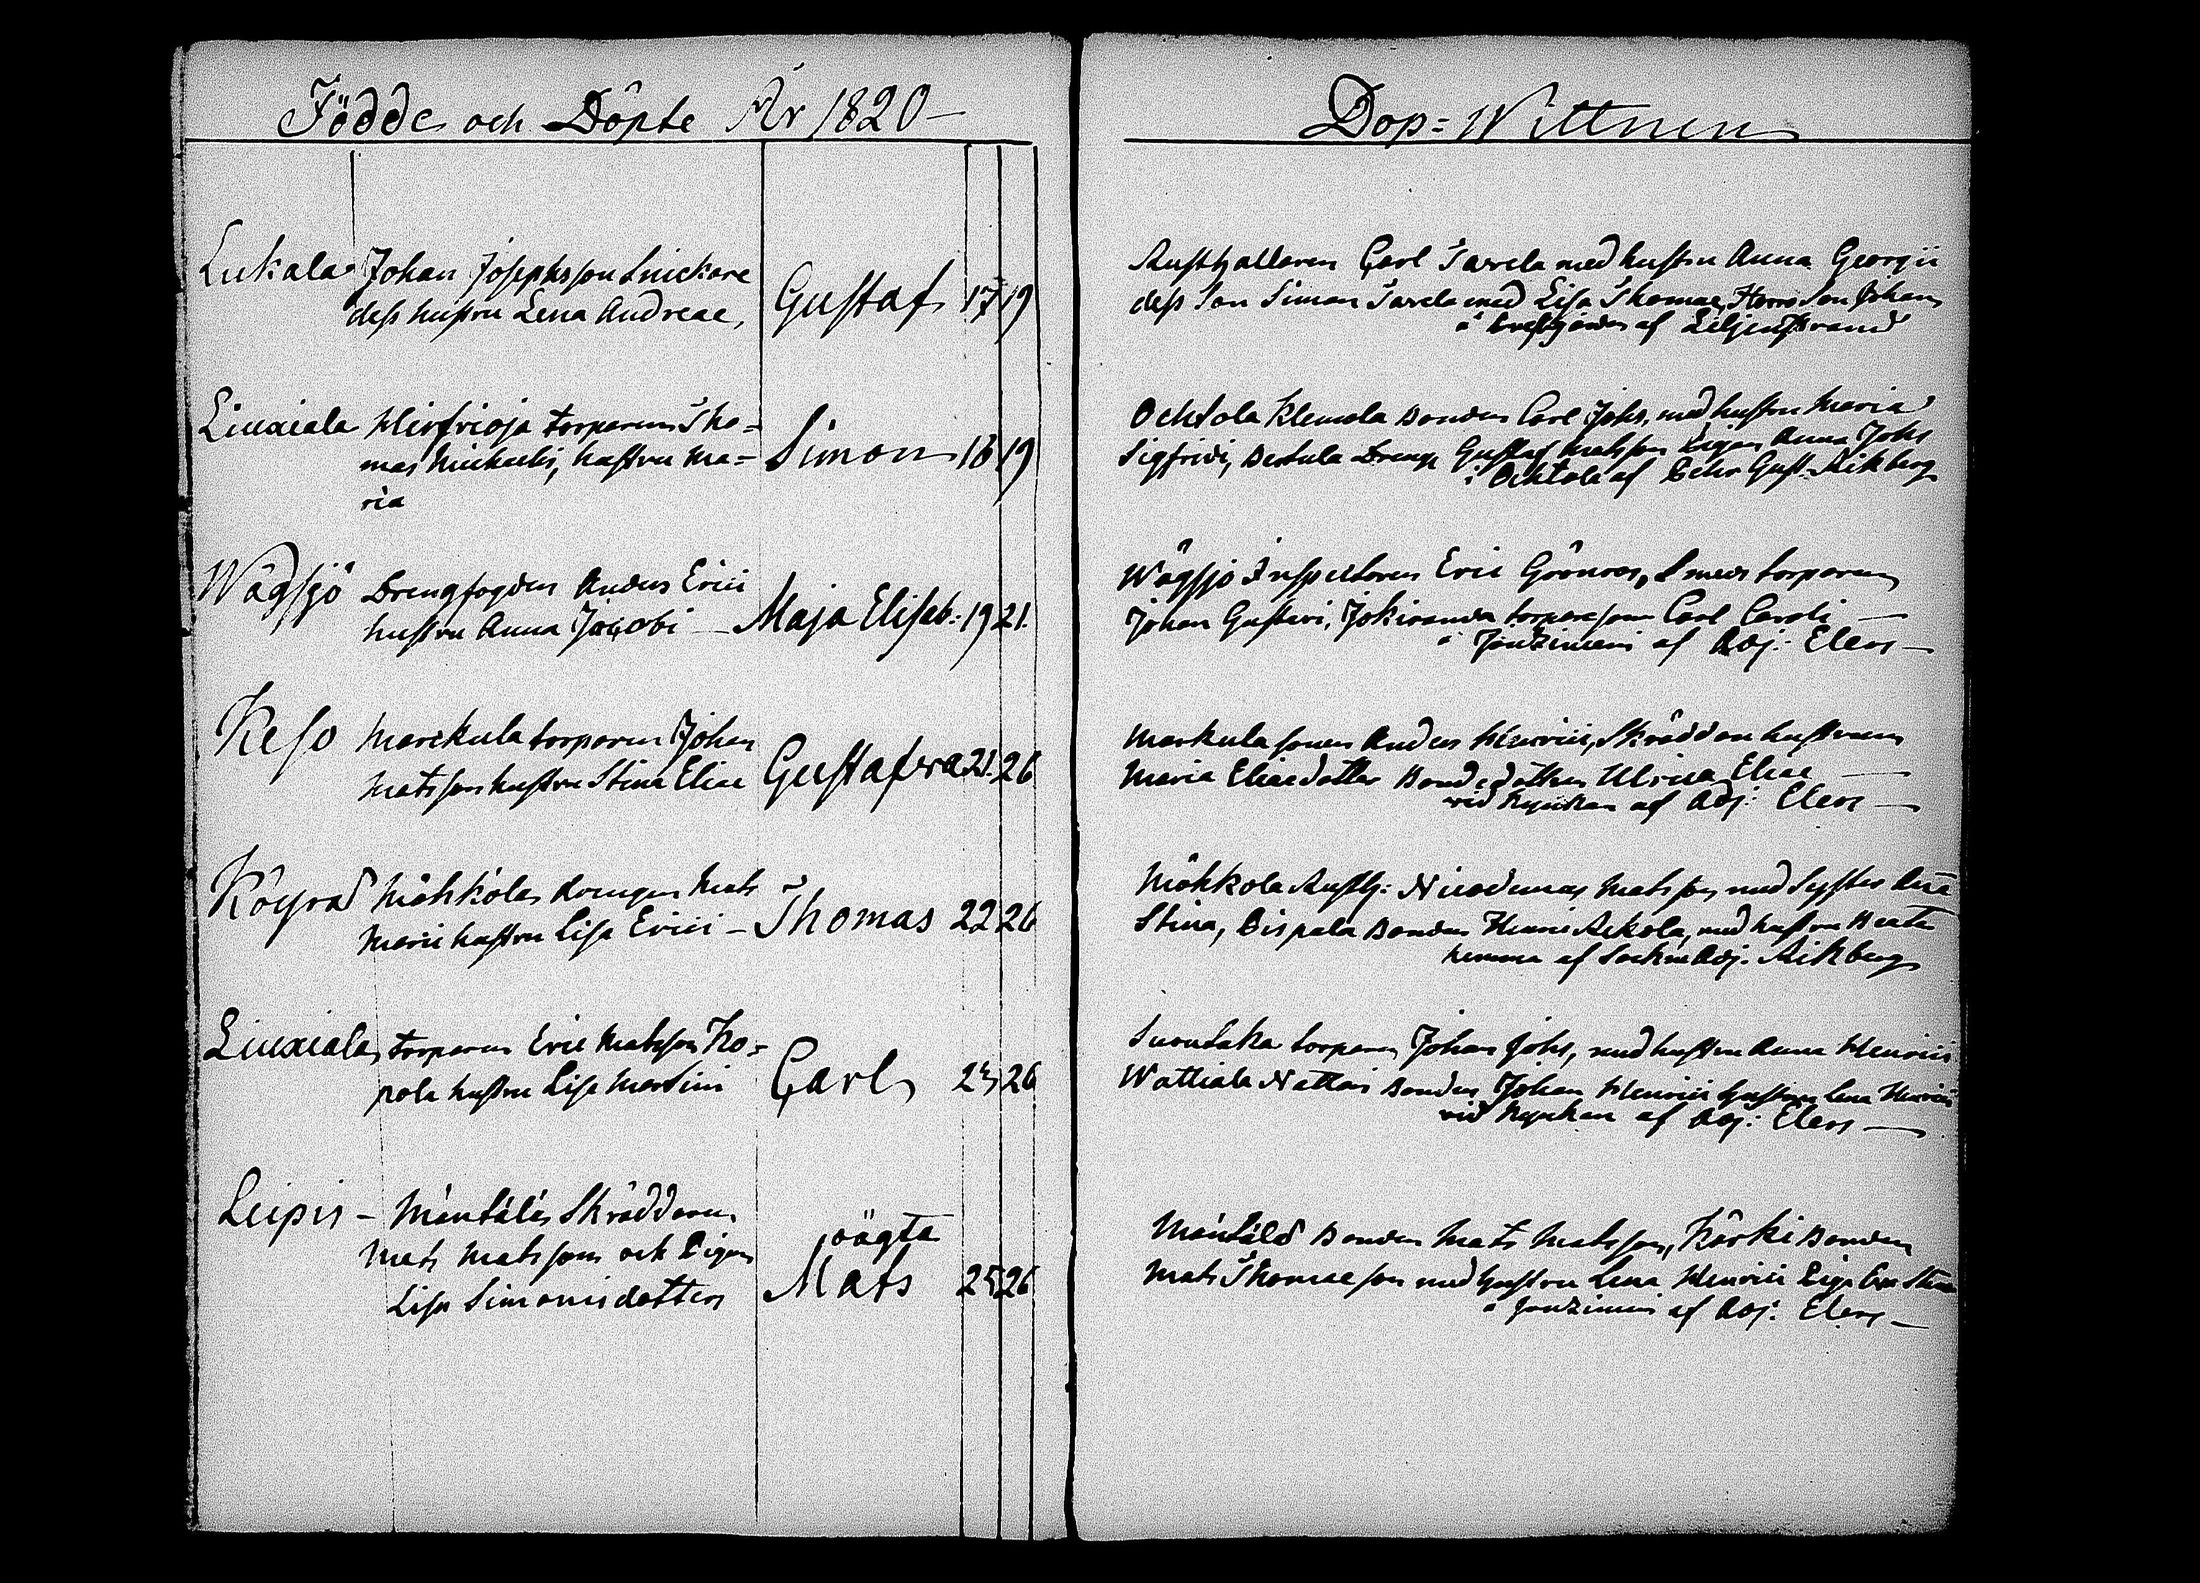 Födde och Döpte År 1820 –
Lukala Johan Josephsson Snickare
dess hustru Lena Andreae,
Gustaf 17 19
Liuxiala Hirsioja torparen Tho=
mas Michaelis, hustru Ma=
ria
Simon 18 19
Wägsjö Drengfogden Anders Erici
hustru Anna Jacobi — Maja Elisab: 19 21.
Keso Markula torparen Johan
Matsson hustru Stina Eliae Gustafva 21. 26
Köyrä Möhkölä drengen Mats
hustru Lisa Erici – Thomas 22 26
Liuxiala, torparen Eric Matsson Ko=
pola hustru Lisa Martini Carl 23 26
Leipis – Mäntälä Skräddaren
Mats Matsson och Pigan
Lisa Simonis dotters
oägta
Mats 25 26
Dop=Wittnen
Rusthållaren Carl Tavela med hustru Anna Georgii
dess Son Simon Tavela med Lisa Thomae, Herr Son Johan
i af Liljestrand
Ochtola Klemola Bonden Carl Johs, med hustru Maria
Sigfridi, Bertula Dreng Gustaf Matsson Pigan Anna Johs
i Ochtola af Gust. Aikberg
Wägsjö Inspectoren Eric Grönroos, Smeds torparen
Johan Gustavi, Jokiranda torpareson Carl Caroli —
i af Adj: Elers —
Markula sonen Anders Henrici, Skräddare hustrun
Maria Eliaedotter Bondedottren Ulrica Eliae —
vid Kyrkan af Adj: Elers —
Möhkölä Rusth: Nicodemus Matsson med Syster
Stina, Pispala Bonden Henric Arkola, med hustru Beata
hemma af Sockne Adj. Aikberg
Suontaka torparen Johan Johs, med hustru Anna Henrici
Wattiala Nattari Bonden Johan Henrici hustru Lena Henrici
vid Kyrkan af Adj: Elers —
Mäntälä Bonden Mats Matsson, Kärki Bonden
Mats Thomaeson med hustru Lena Henrici Piga
i af Adj: Elers —